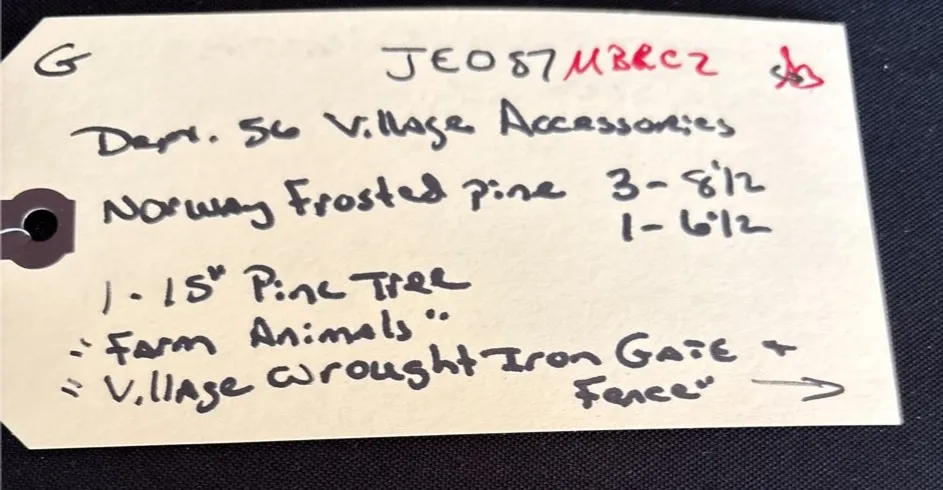 G JE087 MBRC2
Dept. 56 Village Accessories
Norway Frosted pine 3 - 8 1/2
1 - 6 1/2
1 - 15" Pine Tree
"Farm Animals"
"Village Wrought Iron GATE +
Fence" →